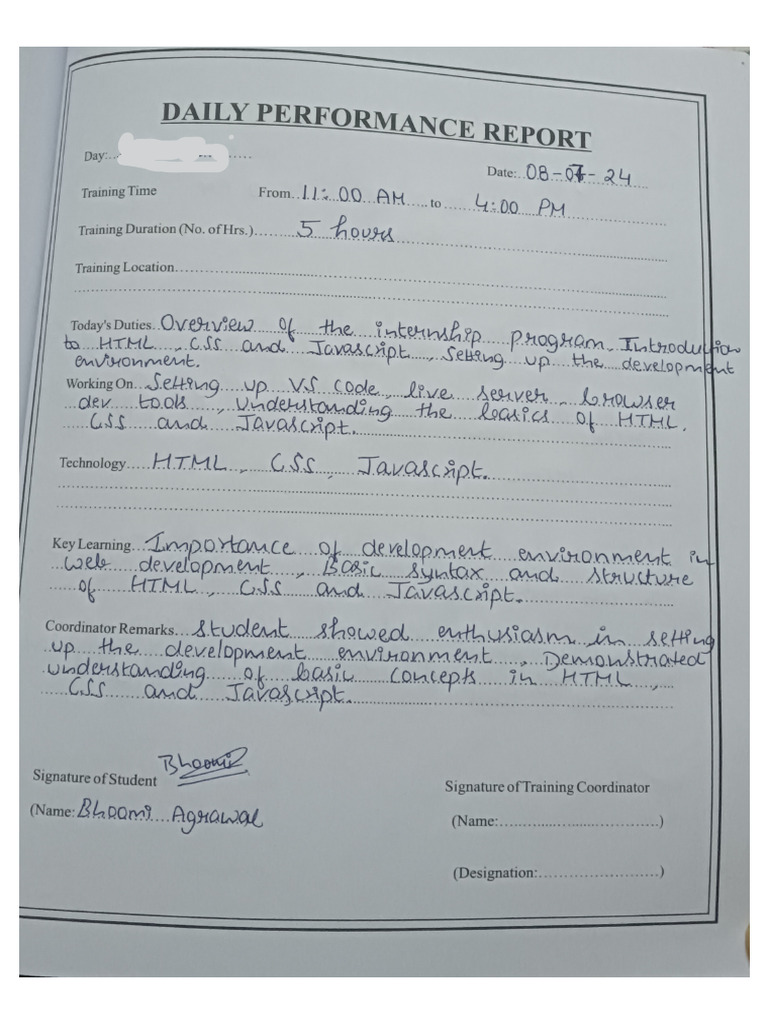 DAILY PERFORMANCE REPORT
Day:
Date: 08-07-24
Training Time From 11:00 AM to 4:00 PM
Training Duration (No. of Hrs.) 5 hours
Training Location
Today's Duties Overview of the internship program, Introduction
to HTML, CSS and Javascript, Setting up the development
environment.
Working On Setting up VS Code, live server, browser
dev tools, Understanding the basics of HTML,
CSS and Javascript.
Technology HTML, CSS, Javascript.
Key Learning Importance of development environment in
web development, Basic syntax and structure
of HTML, CSS and Javascript.
Coordinator Remarks Student showed enthusiasm in setting
up the development environment, Demonstrated
understanding of basic concepts in HTML,
CSS and Javascript.
Signature of Student Bhoomi
Signature of Training Coordinator
(Name: Bhoomi Agrawal
(Name: )
(Designation: )